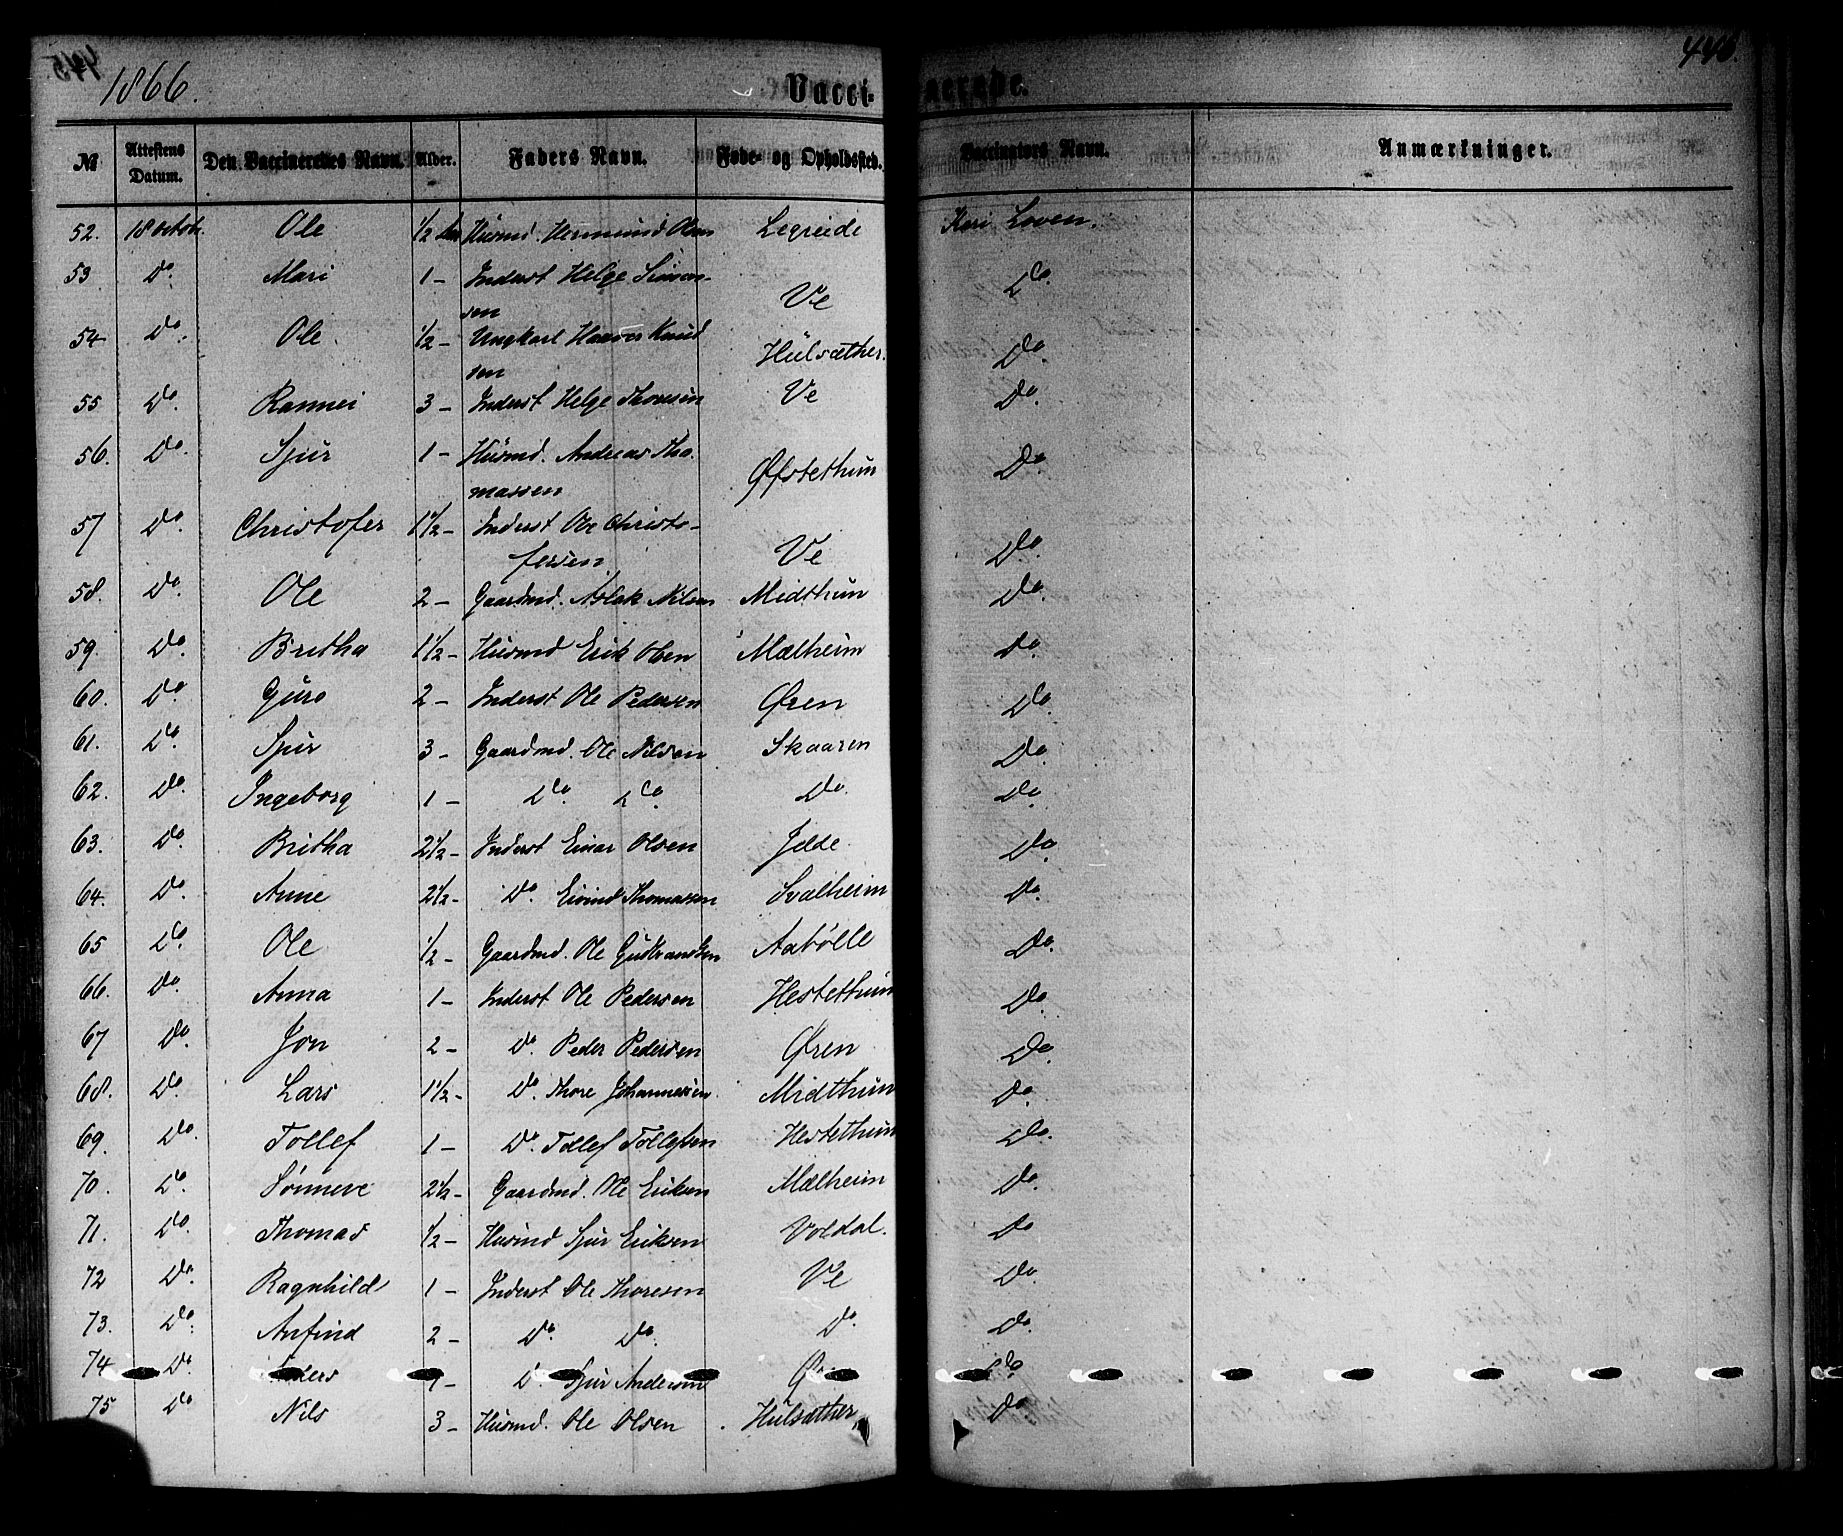 1866. Vacci- nerede. 446.
№ Attestens Datum. Den Vaccineredes Navn. Alder. Faders Navn. Føde- og Opholdssted. Vaccinators Navn. Anmærkninger.
52. 18 octob. Ole 1/2 Husmd. Hermund Olsen Legreide Kari Loven.
53 Do. Mari 1 - Inderst Helge Simon-
sen Ve Do.
54 Do. Ole 1/2 - Ungkarl Haaver Knud
sen Hülsæther. Do.
55 Do. Rannei 3 - Inderst Helge Thomsen Ve Do.
56. Do. Sjur 1 - Husmd. Andreas Tho-
massen Øfstethun Do.
57 Do. Christofer 1 1/2 - Inderst Ole Christo-
fersen Ve Do.
58. Do. Ole 2 - Gaardmd. Aslak Nilsen Midthun Do.
59. Do. Britha 1 1/2 - Husmd Erik Olsen Mælheim do.
60. Do Guro 2 - Inderst Ole Pedersen Øren Do.
61. Do. Sjur 3 - Gaardmd. Ole Nilsen Skaaren Do.
62. Do. Ingeborg 1 - Do. Do. Do. Do.
63. Do. Britha 2 1/2 - Inderst Einar Olsen Jelde. Do.
64. Do. Anne 2 1/2 - Do. Eivind Thomassen Svalheim Do.
65 Do. Ole 1/2 - Gaardmd. Ole Gudbrandsen Aabölle Do.
66. Do. Anna 1 - Inderst Ole Pedersen Hestethun Do.
67 Do. Jon 2 - Do. Peder Pedersen Øren Do.
68. Do. Lars 1 1/2 - Do. Thore Johannessen. Midthun Do.
69. Do. Tollef 1 - Do. Tollef Tollefsen Hestethun Do.
70. Do. Sönneve 2 1/2 - Gaardmd. Ole Eriksen Mælheim Do.
71. Do. Thomas 1/2 - Husmd Sjur Eriksen Voldal. Do
72 Do. Ragnhild 1 - Inderst Ole Thoresen Ve Do.
73. Do. Anfind 2 - Do. Do. Do. Do.
74 Do. 1 - Do. Sjur Andersen Do.
75 Do Nils 3 - Husmd. Ole Olsen Hülsæther Do